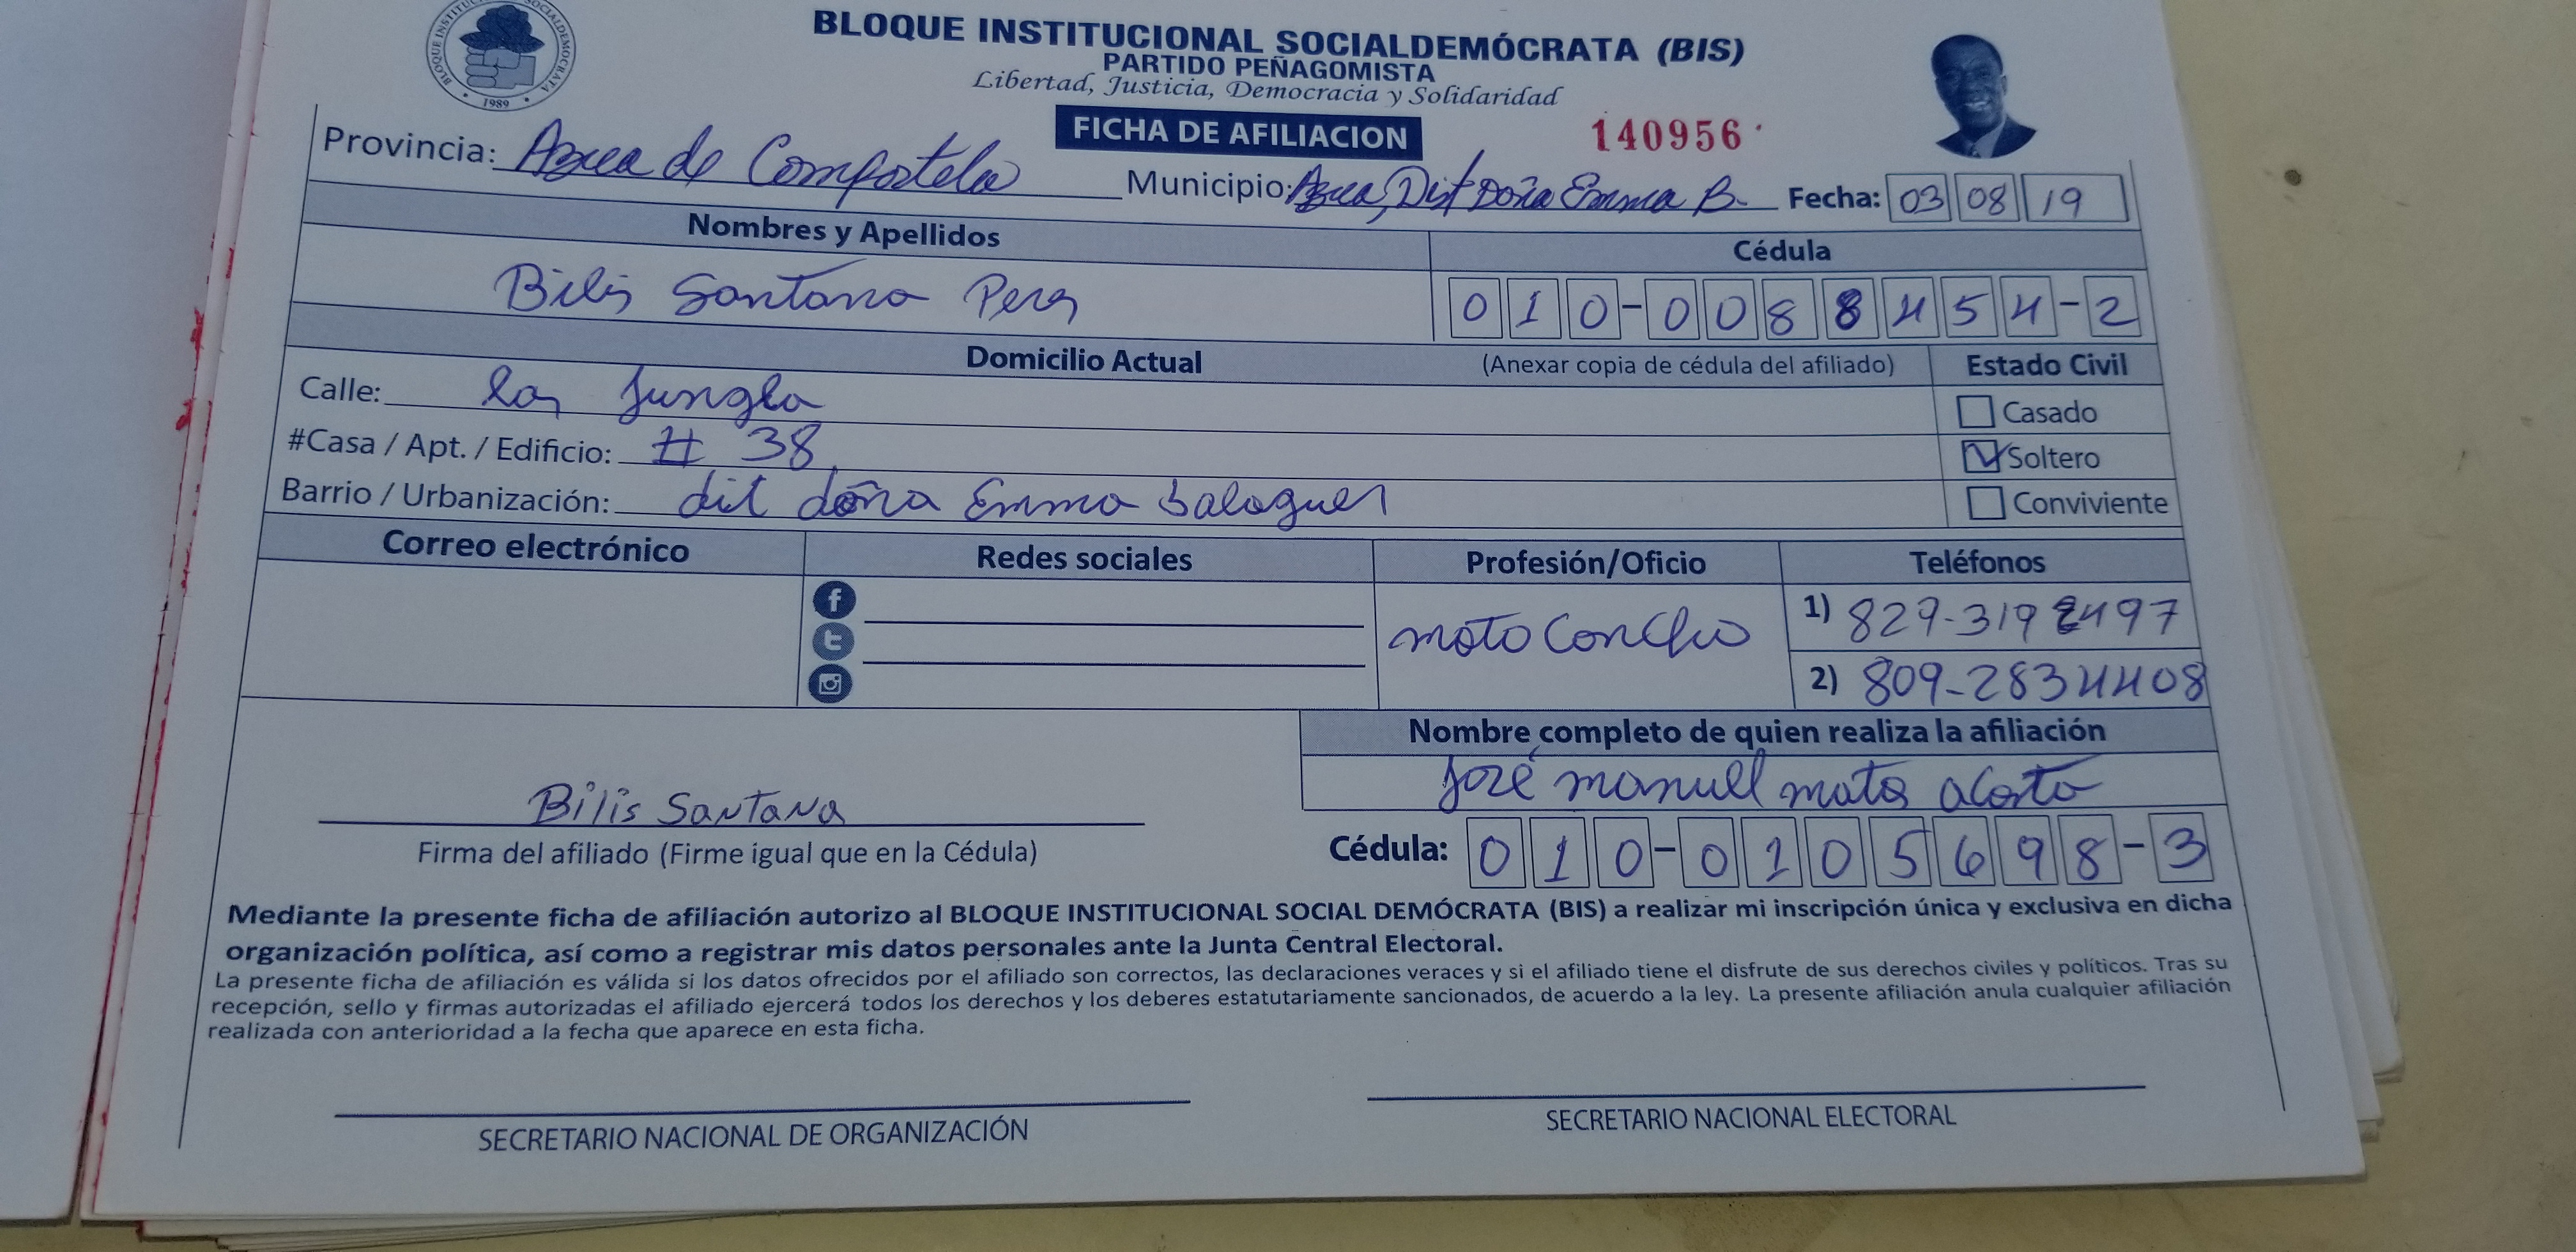 BLOQUE INSTITUCIONAL SOCIALDEMOCRATA
1989
BLOQUE INSTITUCIONAL SOCIALDEMÓCRATA (BIS)
PARTIDO PEÑAGOMISTA
Libertad, Justicia, Democracia y Solidaridad
FICHA DE AFILIACION 140956
Provincia: Azua de Compostela Municipio: Azua, Dist Doña Emma B. Fecha: 03 08 19
Nombres y Apellidos Cédula
Bilis Santana 010-0088454-2
Domicilio Actual (Anexar copia de cédula del afiliado) Estado Civil
Calle: la Jungla Casado
#Casa / Apt. / Edificio: # 38 Soltero
Barrio / Urbanización: dit doña Emma balaguer Conviviente
Correo electrónico Redes sociales Profesión/Oficio Teléfonos
moto Concho 1) 829-319 2497
2) 809-2834408
Nombre completo de quien realiza la afiliación
José manuel mata acosta
Bilis Santana
Firma del afiliado (Firme igual que en la Cédula) Cédula: 010-0105698-3
Mediante la presente ficha de afiliación autorizo al BLOQUE INSTITUCIONAL SOCIAL DEMÓCRATA (BIS) a realizar mi inscripción única y exclusiva en dicha
organización política, así como a registrar mis datos personales ante la Junta Central Electoral.
La presente ficha de afiliación es válida si los datos ofrecidos por el afiliado son correctos, las declaraciones veraces y si el afiliado tiene el disfrute de sus derechos civiles y políticos. Tras su
recepción, sello y firmas autorizadas el afiliado ejercerá todos los derechos y los deberes estatutariamente sancionados, de acuerdo a la ley. La presente afiliación anula cualquier afiliación
realizada con anterioridad a la fecha que aparece en esta ficha.
SECRETARIO NACIONAL DE ORGANIZACIÓN SECRETARIO NACIONAL ELECTORAL